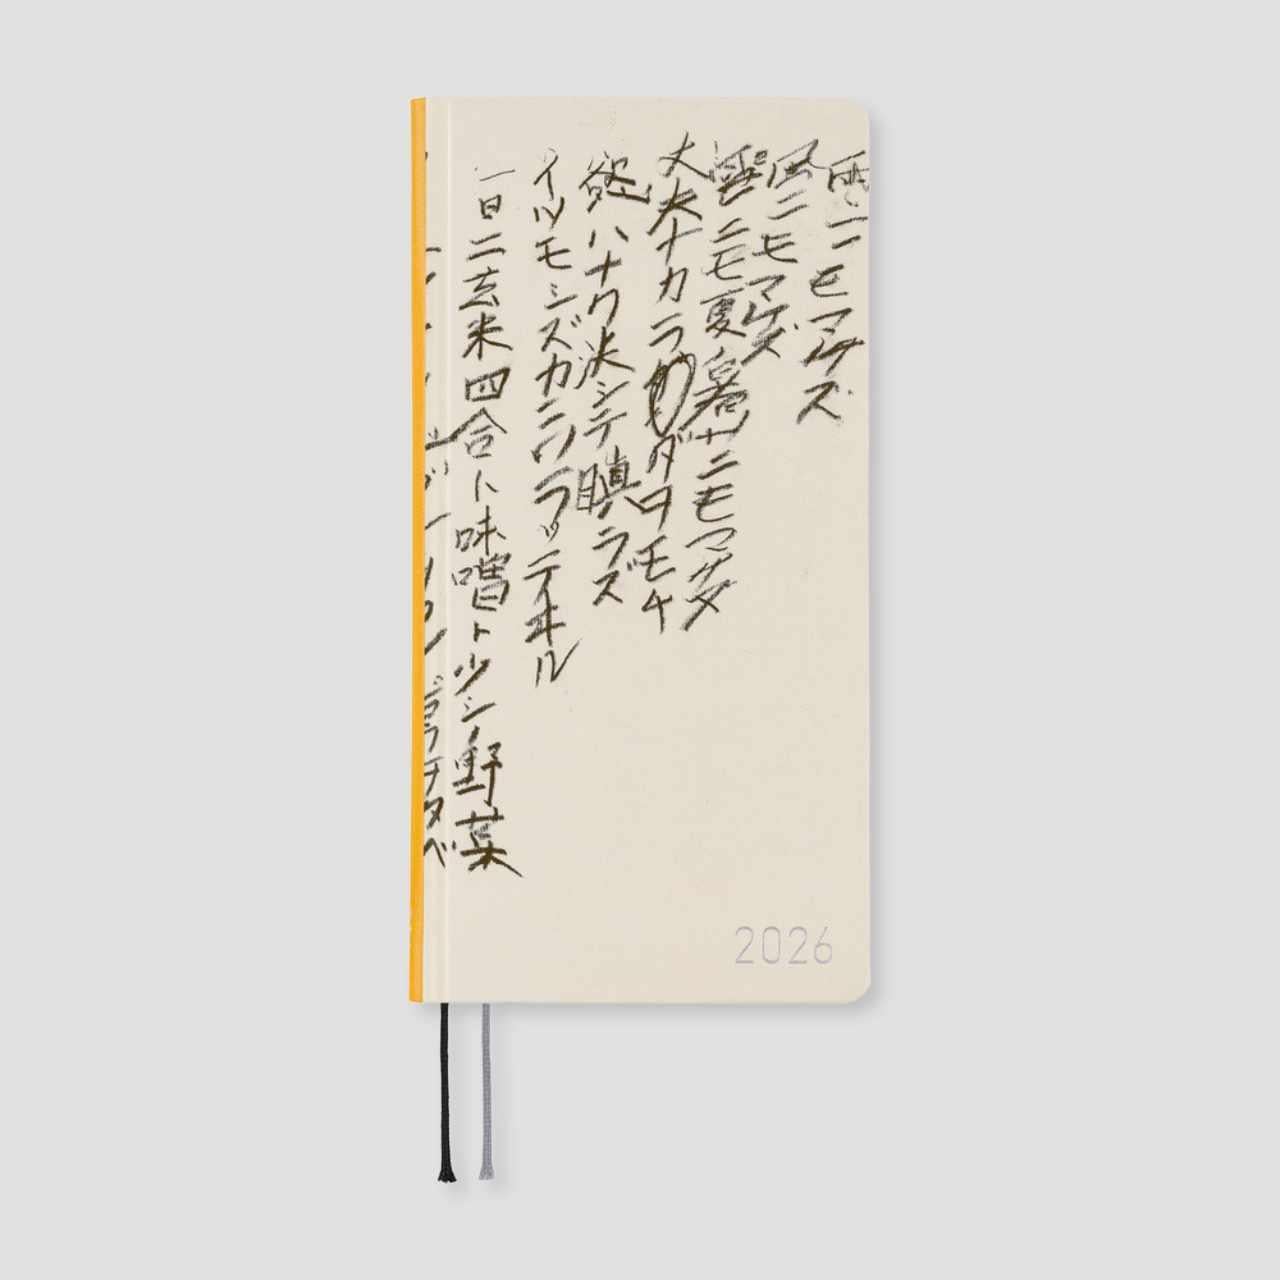 雨ニモマケズ
風ニモマケズ
雪ニモ夏ノ暑サニモマケヌ
丈夫ナカラダヲモチ
慾ハナク決シテ瞋ラズ
イツモシヅカニワラッテヰル
一日ニ玄米四合ト味噌ト少シノ野菜
タベ
2026